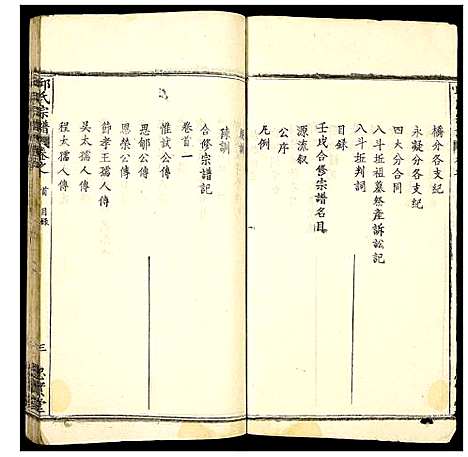 橋分各支紀
永凝分各支紀
四大分合同
八斗坵祖墓祭産訴訟記
八斗坵判詞
目錄
壬戌合修宗譜名目
源流叙
公序
凡例
陳訓
卷首一
合修宗譜記
惟試公傳
思郇公傳
恩榮公傳
節孝王孺人傳
吳太孺人傳
程太孺人傳
邱氏宗譜
卷之
首 目錄
三